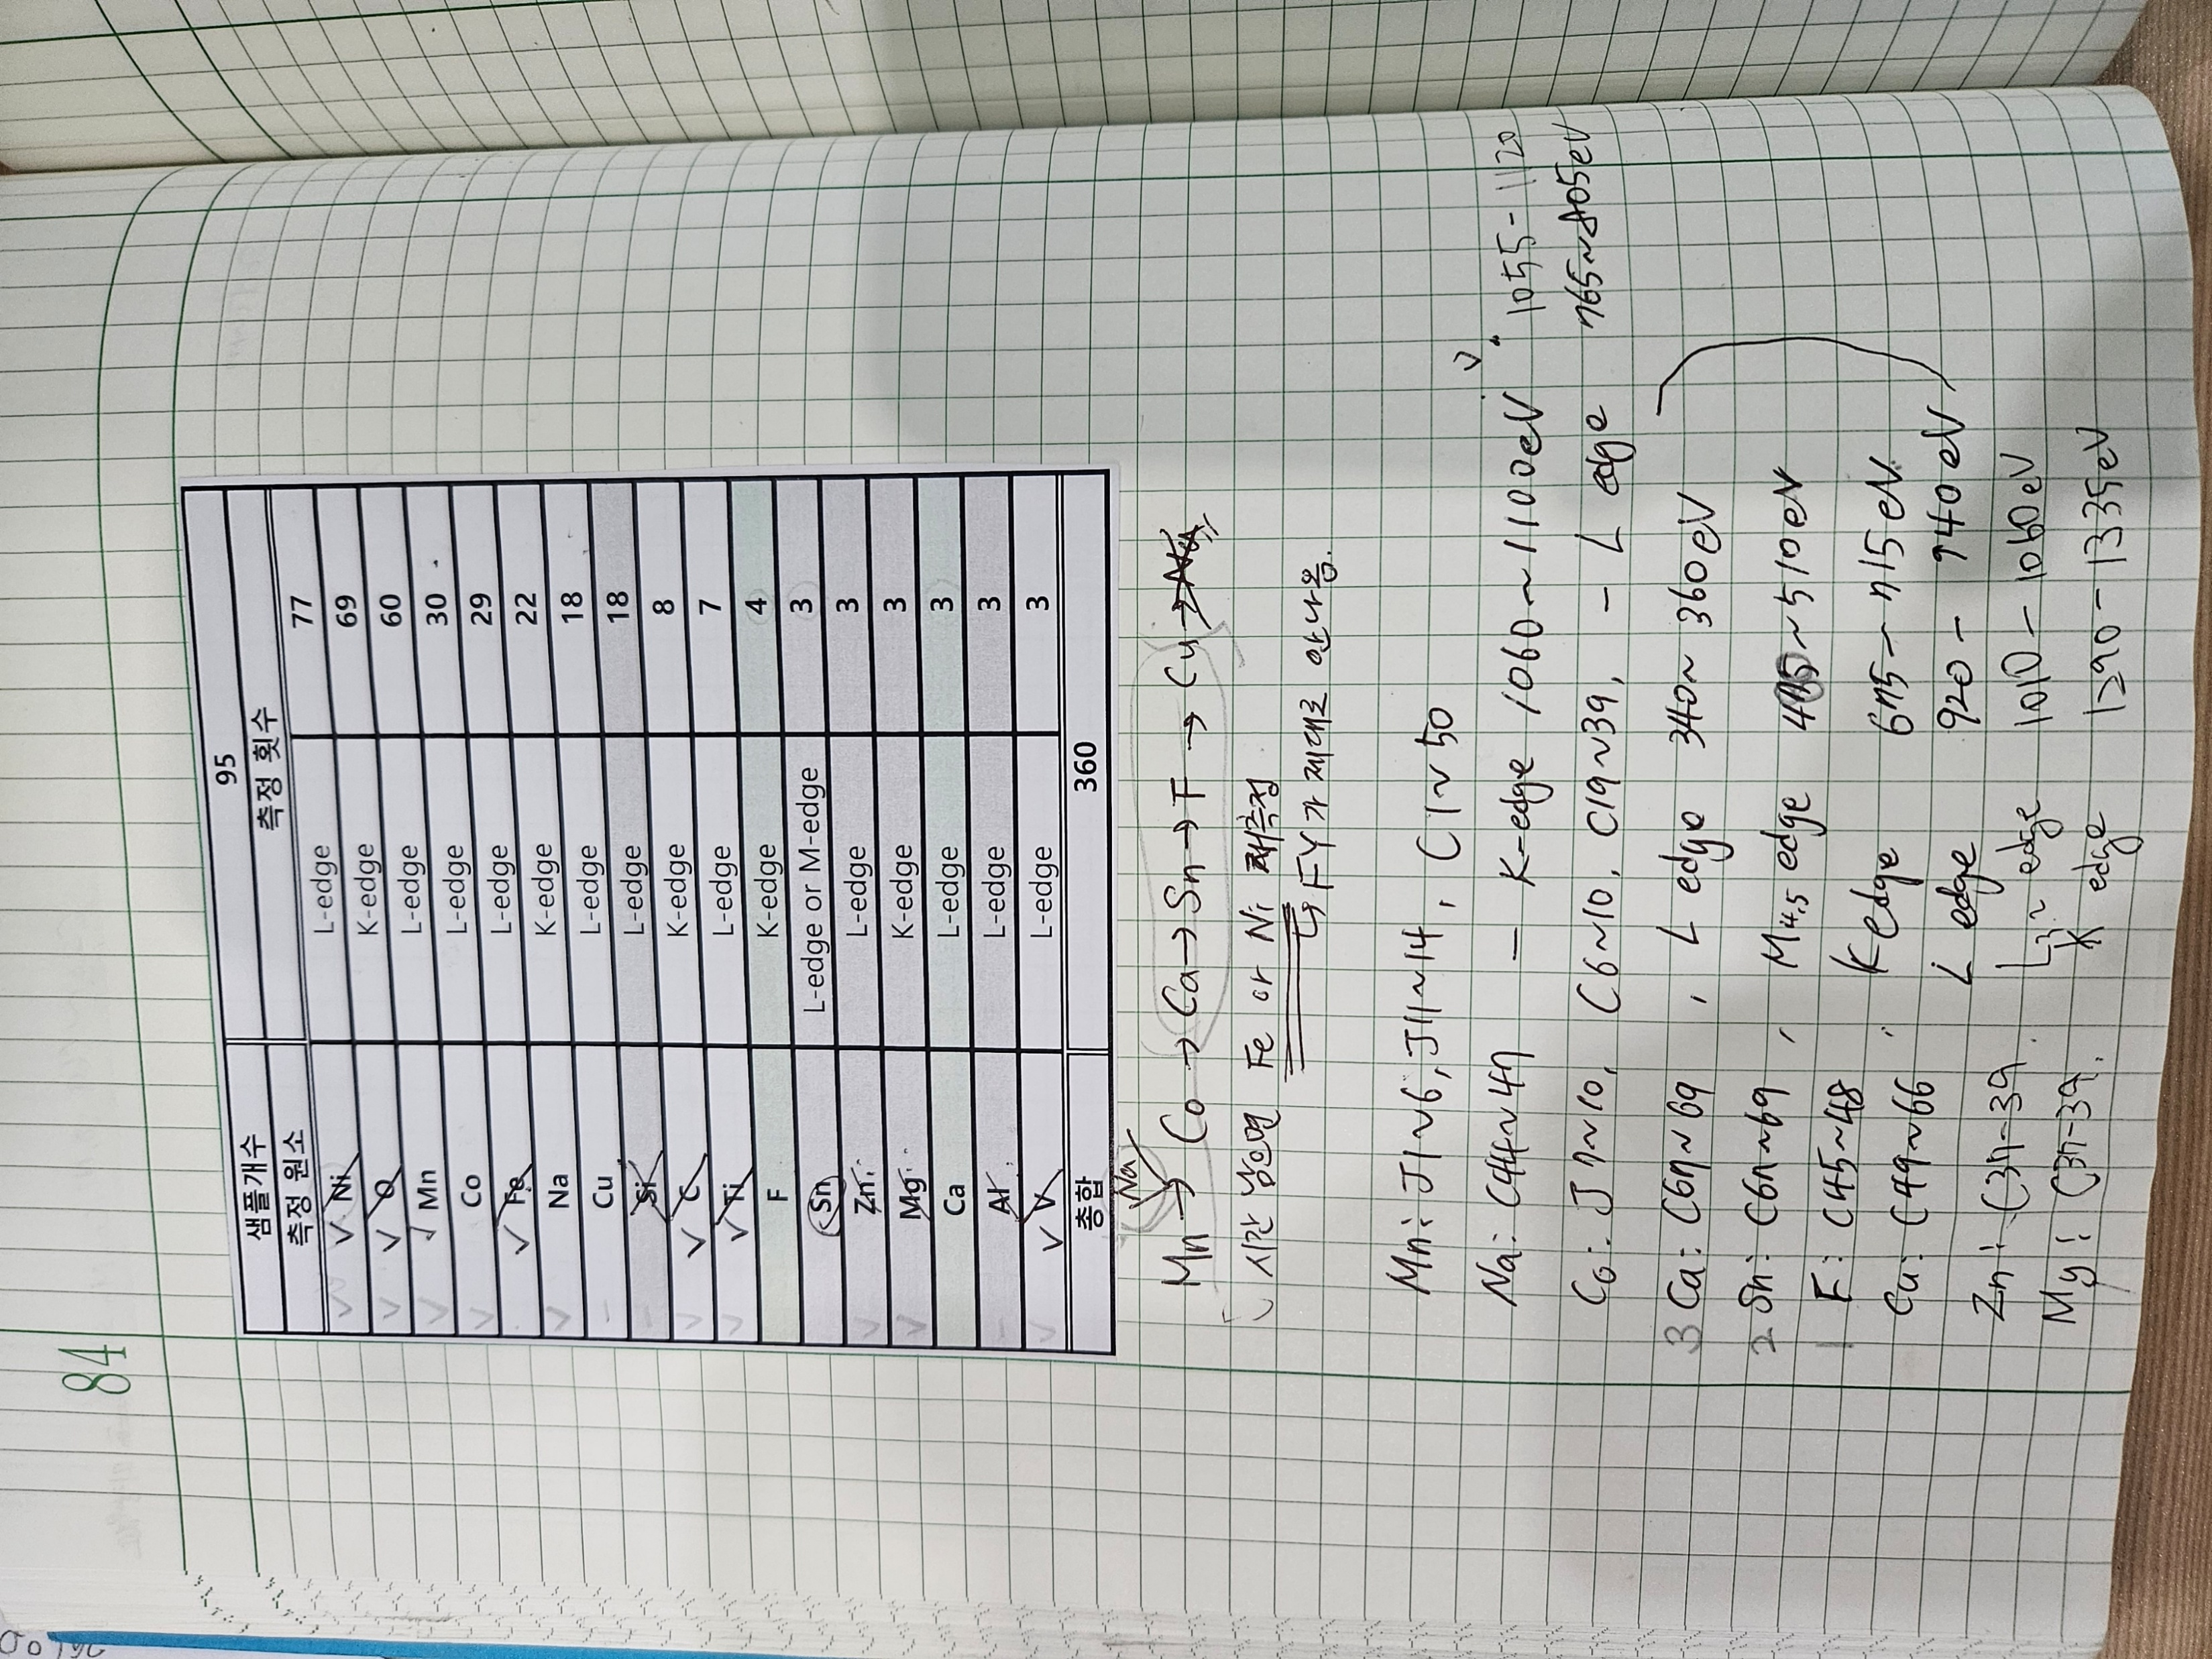 84
샘플개수 95
측정 원소 측정 횟수
Ni L-edge 77
O K-edge 69
Mn L-edge 60
Co L-edge 30
Fe L-edge 29
Na K-edge 22
Cu L-edge 18
Si L-edge 18
C K-edge 8
Ti L-edge 7
F K-edge 4
Sn L-edge or M-edge 3
Zn L-edge 3
Mg K-edge 3
Ca L-edge 3
Al L-edge 3
V L-edge 3
총합 360
Na
Mn → Co → Ca → Sn → F → Cu →
시간 남으면 Fe or Ni 재측정
↳ FY가 제대로 안나옴.
Mn: J1~6, J11~14, C1~50
Na: C44~47 - K-edge 1060~1100eV 1055-1120
Co: J7~10, C6~10, C19~39, - L edge 765~805eV
3 Ca: C67~69, L edge 340~360eV
2 Sn: C67~69, M4,5 edge ~510eV
1 F: C45~48, K edge 675-715eV
Cu: C49~66 L edge 920-940eV
Zn: C37-39. L3,2 edge 1010-1060eV
Mg: C37-39. K edge 1290-1335eV